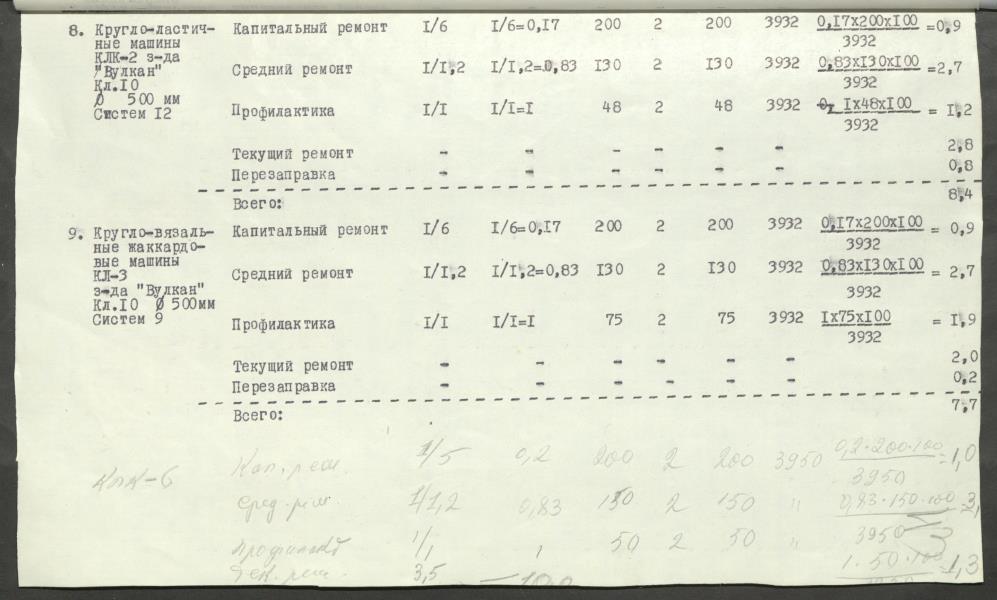 8. Кругло-ластич- Капитальный ремонт I/6 I/6=0,I7 200 2 200 3932 0,I7x200xI00 =0,9
ные машины 3932
КЛК-2 з-да
"Вулкан" Средний ремонт I/I,2 I/I,2=0,83 I30 2 I30 3932 0,83xI30xI00 =2,7
Кл.I0 3932
Ø 500 мм
Систем I2 Профилактика I/I I/I=I 48 2 48 3932 0, Ix48xI00 = I,2
3932
Текущий ремонт - - - - - - 2,8
Перезаправка - - - - - - 0,8
Всего: 8,4
9. Кругло-вязаль- Капитальный ремонт I/6 I/6=0,I7 200 2 200 3932 0,I7x200xI00 = 0,9
ные жаккардо- 3932
вые машины
КЛ-3 Средний ремонт I/I,2 I/I,2=0,83 I30 2 I30 3932 0,83xI30xI00 = 2,7
з-да "Вулкан" 3932
Кл.I0 Ø 500мм
Систем 9 Профилактика I/I I/I=I 75 2 75 3932 Ix75xI00 = I,9
3932
Текущий ремонт - - - - - - 2,0
Перезаправка - - - - - - 0,2
Всего: 7,7
Кап. рем. 1/5 0,2 200 2 200 3950 0,2·200·100 =1,0
3950
Сред. рем. 1/1,2 0,83 150 2 150 " 0,83·150·100 3,
3950
1/1 1 50 2 50 " 1·50·100 1,3
Тек. рем. 3,5